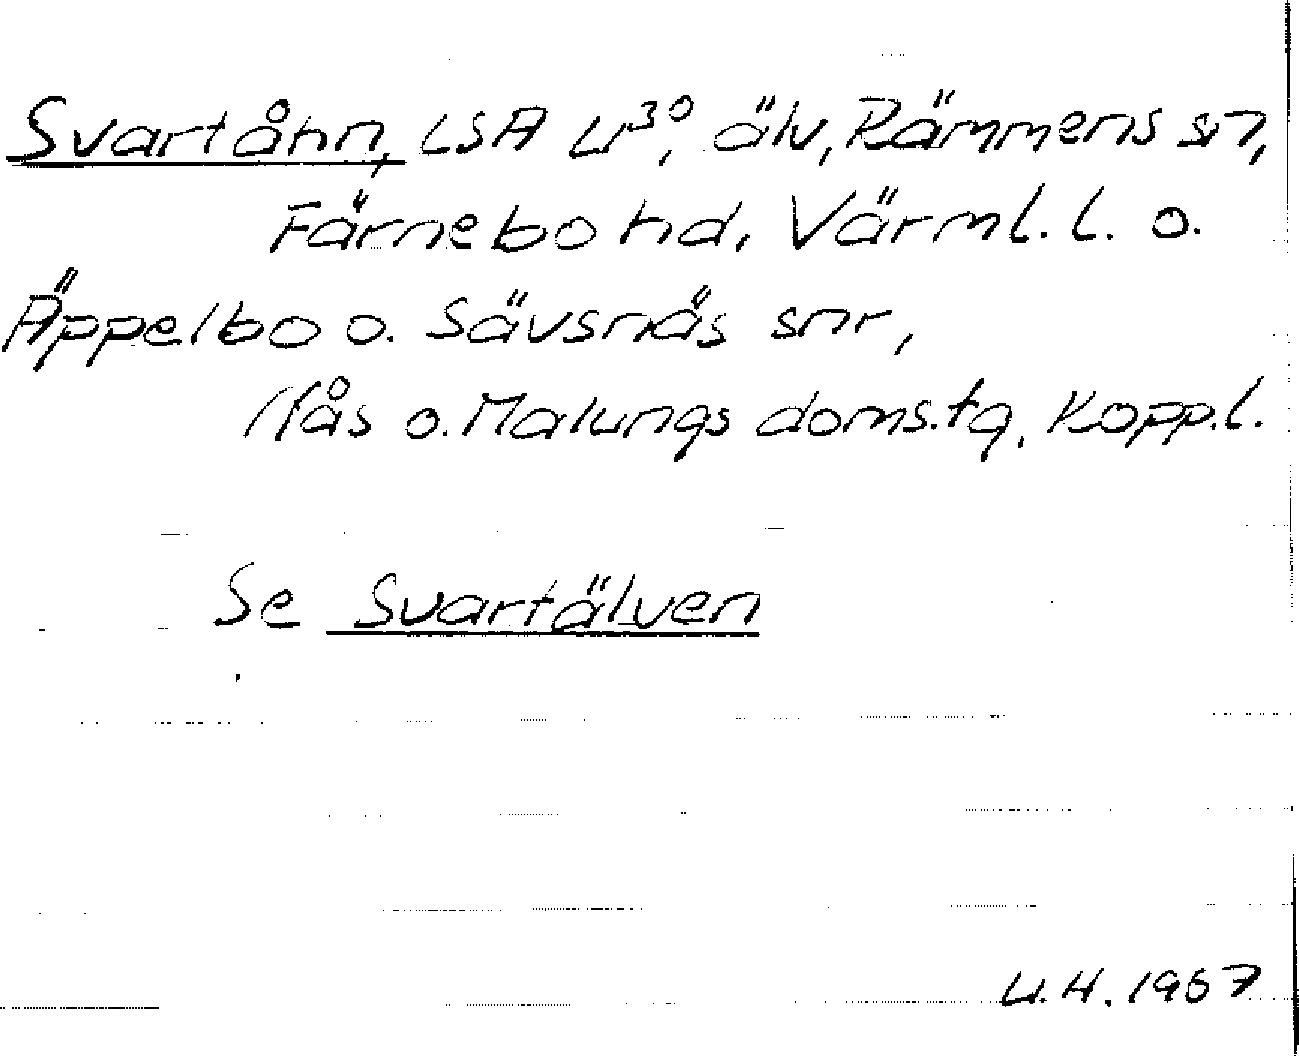 Svartånn, LSA U³⁰, älv, Rämmens sn,
Färnebo hd, Värml. l. o.
Äppelbo o. Sävsnäs snr,
Nås o. Malungs doms.tg, Kopp.l.
Se Svartälven
U.H. 1967